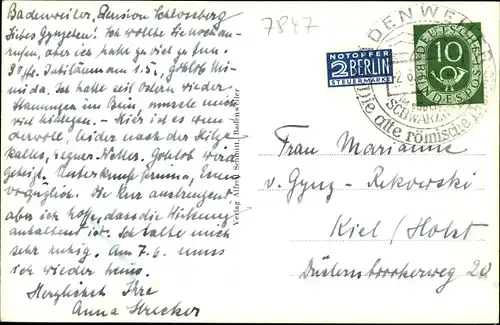 Badenweiler, Pension Schlossberg
7847
Liebes Gynzchen! Ich wollte Sie noch an-
rufen, aber ich hatte zu viel zu tun.
Jubiläum am 1.5., gottlob
da. Ich hatte seit Ostern wieder
Stauungen im Bein, musste noch
viel hinlegen. - Hier ist es wun-
dervoll, leider nach der Hitze
kaltes, regner. Wetter. Gottlob wird
geheizt. Unterkunft prima, Essen
vorzüglich. Die Kur anstrengend
aber ich hoffe, dass die Wirkung
anhaltend ist. Ich halte mich
sehr ruhig. Am 7.6. muss
ich wieder heim.
Herzlichst Ihre
Anna Strecker
Verlag Alfred Schmitt, Badenweiler
NOTOPFER
2 BERLIN
STEUERMARKE
DEUTSCHE BUNDESPOST
10
BADENWEILER
SCHWARZW
Die alte römische
Frau Marianne
v. Gynz-Rekowski
Kiel/Holst
Düsternbrookerweg 20